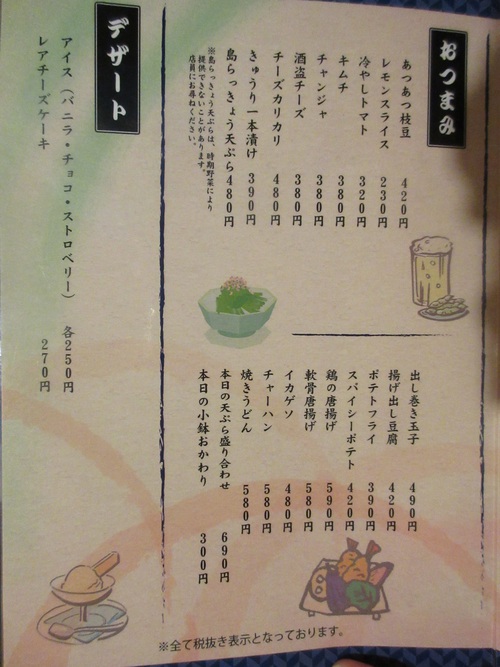 おつまみ
あつあつ枝豆 420円
レモンスライス 230円
冷やしトマト 320円
キムチ 380円
チャンジャ 380円
酒盗チーズ 380円
チーズカリカリ 480円
きゅうり一本漬け 390円
島らっきょう天ぷら 480円
※島らっきょう天ぷらは、時期野菜により
提供できないことがあります。
店員にお尋ねください。
出し巻き玉子 490円
揚げ出し豆腐 420円
ポテトフライ 390円
スパイシーポテト 420円
鶏の唐揚げ 590円
軟骨唐揚げ 580円
イカゲソ 480円
チャーハン 580円
焼きうどん 580円
本日の天ぷら盛り合わせ 690円
本日の小鉢おかわり 300円
デザート
アイス（バニラ・チョコ・ストロベリー） 各250円
レアチーズケーキ 270円
※全て税抜き表示となっております。